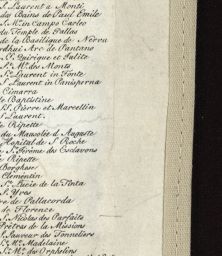 S. Laurent a Monti
des Bains de Paul Emile
S. M. in Campo Carleo
du Temple de Pallas
de la Basilique de Nerva
Arc de Pantano
S. Quirique et Julite
S. M. des Monts
S. Laurent in Fonte
S. Laurent in Panisperna
Cimarra
le Baptistine
SS. Pierre et Marcellin
S. Laurent
Ripette
du Mausolée d'Auguste
Hopital de S. Roche
S. Jérôme des Esclavons
Ripette
Borghese
Clementin
S. Lucie de la Tinta
S. Yves
de Pallacorda
de Florence
S. Nicolas des Parfaits
Prêtres de la Mission
S. Sauveur des Tonneliers
S. M. Madelaine
S. M. des Orphelins